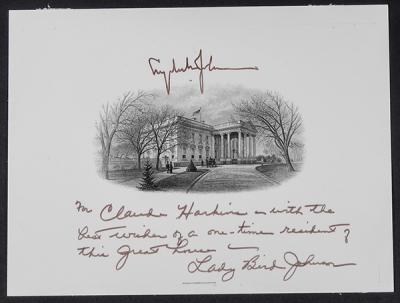 Lyndon B. Johnson
For Claude Harkins — with the
best wishes of a one-time resident of
this great house —
Lady Bird Johnson